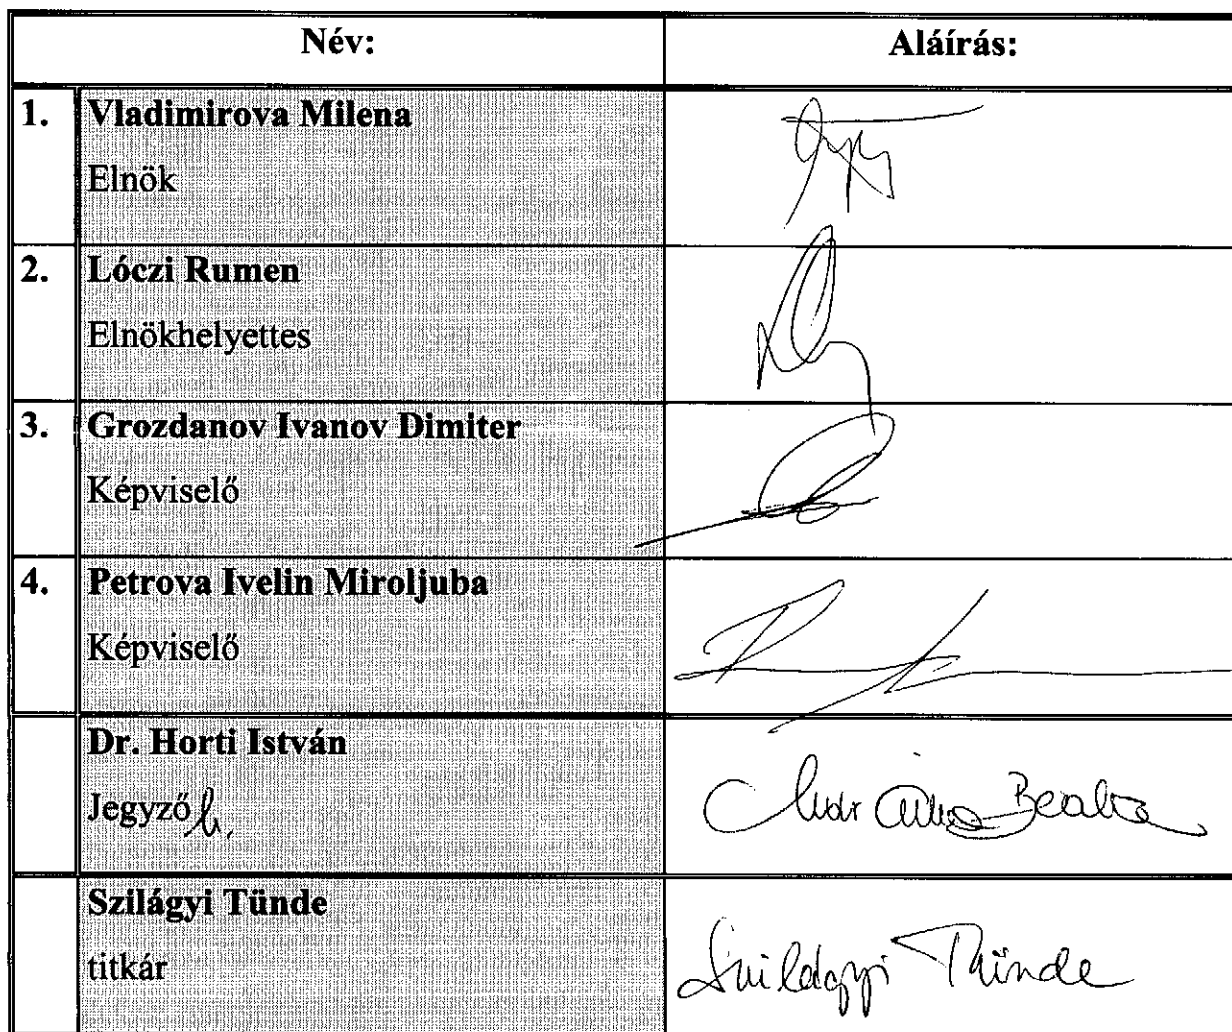 Név: Aláírás:
1. Vladimirova Milena
Elnök
2. Lóczi Rumen
Elnökhelyettes
3. Grozdanov Ivanov Dimiter
Képviselő
4. Petrova Ivelin Miroljuba
Képviselő
Dr. Horti István
Jegyző h.
Beáta
Szilágyi Tünde
titkár Szilágyi Tünde